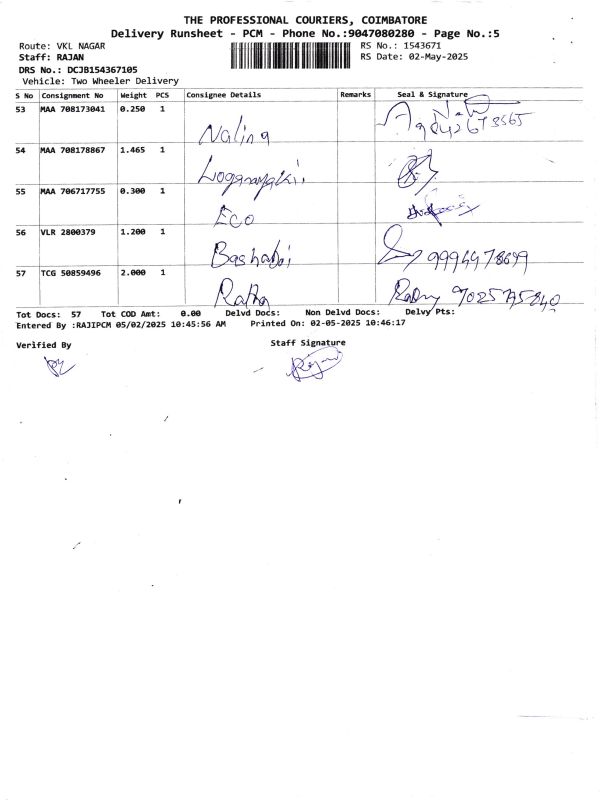 THE PROFESSIONAL COURIERS, COIMBATORE
Delivery Runsheet - PCM - Phone No.:9047080280 - Page No.:5
Route: VKL NAGAR RS No.: 1543671
Staff: RAJAN RS Date: 02-May-2025
DRS No.: DCJB154367105
Vehicle: Two Wheeler Delivery
S No Consignment No Weight PCS Consignee Details Remarks Seal & Signature
53 MAA 708173041 0.250 1 Nalina
54 MAA 708178867 1.465 1
55 MAA 706717755 0.300 1 Eco
56 VLR 2800379 1.200 1
57 TCG 50859496 2.000 1
Tot Docs: 57 Tot COD Amt: 0.00 Delvd Docs: Non Delvd Docs: Delvy Pts:
Entered By :RAJIPCM 05/02/2025 10:45:56 AM Printed On: 02-05-2025 10:46:17
Verified By Staff Signature